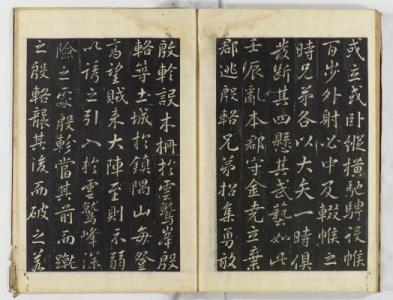 或立或卧縱橫馳騁設帿
百步外射必中及輟帿之
時兄弟各以大矢一時俱
發斷其四懸其武藝如此
壬辰亂本郡守金堯立棄
郡逃殷輅兄弟招集勇敢
殷軫設木柵於雲鷲岸殷
輅等土城於鎮隅山每登
高望賊來大陣至則示弱
以誘之引入於雲鷲峰深
險之處殷軫當其前而蹴
之殷輅襲其後而破之義